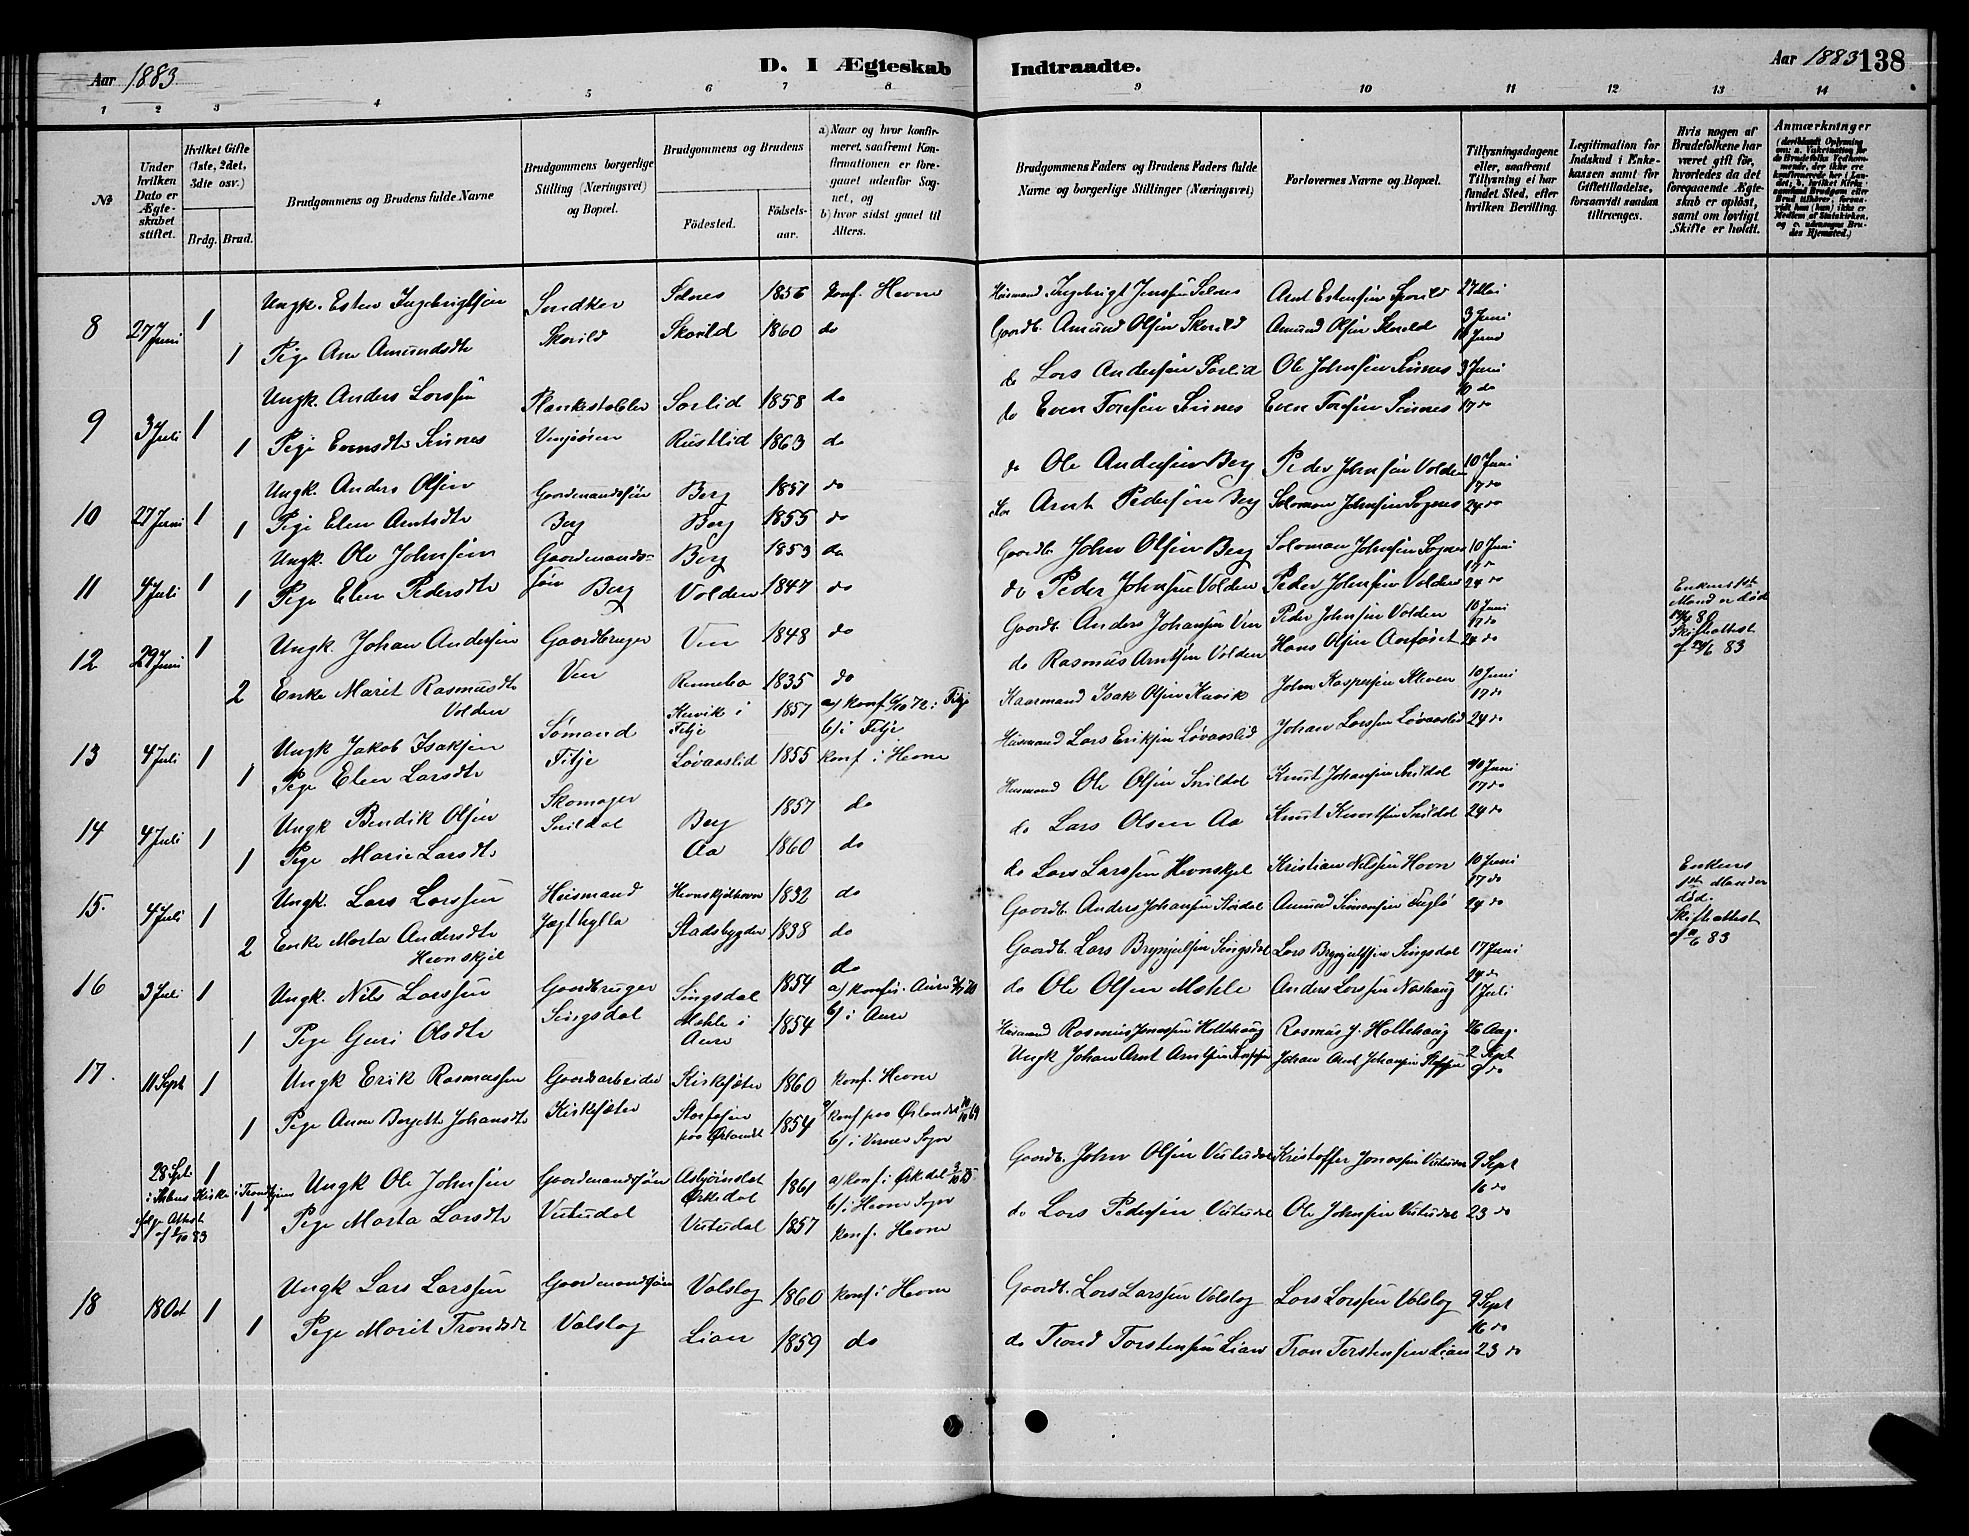 Aar 1883 D. I Ægteskab Indtraadte. Aar 1883 138
1 2 3 4 5 6 7 8 9 10 11 12 13 14
No
Under hvilken Dato er Ægteskabet stiftet.
Hvilket Gifte (1ste, 2det, 3die osv.)
Brdg. Brud.
Brudgommens og Brudens fulde Navne
Brudgommens borgerlige Stilling (Næringsvei) og Bopæl.
Brudgommens og Brudens
Fødested. Fødselsaar.
a) Naar og hvor konfirmeret, saafremt Konfirmationen er foregaaet udenfor Sognet, og
b) hvor sidst gaaet til Alters.
Brudgommens Faders og Brudens Faders fulde Navne og borgerlige Stillinger (Næringsvei)
Forlovernes Navne og Bopæl.
Tillysningsdagene eller, saafremt Tillysning ei har fundet Sted, efter hvilken Bevilling.
Legitimation for Indskud i Enkekassen samt for Giftetilladelse, forsaavidt saadan tiltrænges.
Hvis nogen af Brudefolkene har været gift før, hvorledes da det foregaaende Ægteskab er opløst, samt om lovligt Skifte er holdt.
Anmærkninger
8 27 Juni 1 Ungk. Esten Ingebrigtsen Snidker Selnes 1856 konf. Hevne Husmand Ingebrigt Jenssen Selnes Arnt Estensen 27 Mai
1 Pige Ane Amundsdtr Skorild Skorild 1860 do Gaardb. Amund Olsen Skorild Amund Olsen Skorild 3 Juni
10 Juni
9 3 Juli 1 Ungk. Anders Larssen Sorlid 1858 do do Lars Andersen Sorlid Ole Johnsen Sinnes 3 Juni
10 do
1 Pige Evensdtr Sinnes Rustlid 1863 do do Even Toresen Sinnes Even Toresen Sinnes 17 do
10 27 Juni 1 Ungk. Anders Olsen Gaardmandssøn Berg 1857 do do Ole Andersen Berg Peder Johnsen Volden 10 Juni
17 do
1 Pige Elen Arntsdtr Berg Berg 1855 do Arnt Pedersen Berg Solomon Johnsen Sognes 24 do
11 4 Juli 1 Ungk. Ole Johnsen Gaardmands- Berg 1853 do Gaardb. John Olsen Berg Solomon Johnsen Sognes 10 Juni
17 do
1 Pige Elen Pedersdtr søn Berg Volden 1847 do do Peder Johnsen Volden Peder Johnsen Volden 24 do
12 29 Juni 1 Ungk. Johan Andersen Gaardbruger Ven 1848 do Gaardb. Anders Johansen Ven Peder Johnsen Volden 10 Juni
17 do
2 Enke Marit Rasmusdtr Volden Ven Rennebo 1835 do do Rasmus Arntsen Volden Hans Olsen 24 do
Enkens 1ste Mand er død 80 Skifteattest af 83
13 4 Juli 1 Ungk Jakob Isaksen Sømand i Fitje 1857 a) konf 72 i Fitje b) i Fitje Isak Olsen John Kaspersen Kleven 10 Juni
17 do
1 Pige Elen Larsdtr Fitje Løvaaslid 1855 konf i Hevne Husmand Lars Eriksen Løvaaslid Johan Larssen Løvaaslid 24 do
14 4 Juli 1 Ungk Bendik Olsen Skomager Berg 1857 do Husmand Ole Olsen Snildal Knut Johansen Snildal 10 Juni
17 do
1 Pige Marie Larsdtr Snildal Aa 1860 do do Lars Olsen Aa Knut Knutsen Snildal 24 do
15. 4 Juli 1 Ungk. Lars Larssen Husmand 1832 do do Lars Larssen Hevnskjel Kristian Nilssen Havn 10 Juni
17 do
2 Enke Marta Andersdtr Hevnskjel Jægthylla Stadsbygden 1838 do Gaardb. Anders Johansen Amund Simonsen Fuglø 24 do
Enkens 1ste Mand er død. Skifteattest af 83
16 3 Juli 1 Ungk. Nils Larssen Gaardbruger Singsdal 1854 do Gaardb. Lars Brynjulfsen Singsdal Lars Brynjulfsen Singsdal 17 Juni
24 do
1 Pige Guri Olsdtr Singsdal Mehle i Aure 1854 a) konf i Aure b) i Aure do Ole Olsen Mehle Anders Larssen 1 Juli
17. 11 Sept 1 Ungk Erik Rasmussen Gaardsarbeider Kirkesæter 1860 konf. Hevne Husmand Rasmus Jonassen Holtehaug Rasmus J. Holtehaug 26 Aug.
2 Sept
1 Pige Anne Bergitte Johansdtr Kirkesæter Storfosen paa Ørlandet 1854 a) konf paa Ørlandet 69 b) i Vinne Sogn Ungk Johan Arnt Arntsen Johan Arnt Johansen 9 do
28 Sept i Kirke i Trondhjem ifølge Attest af 83 1 Ungk Ole Johnsen Gaardmandssøn Asbjørnslet Ørkedal 1861 a) konf i Ørkedal b) i Hevne Sogn Gaardb. John Olsen Vutudal Kristoffer Jonassen Vutudal 9 Sept
16 do
1 Pige Marta Larsdtr Vutudal Vutudal 1857 konf. Hevne do Lars Pedersen Vutudal Ole Johnsen Vutudal 23 do
18 18 Oct 1 Ungk Lars Larssen Gaardmandssøn Valslag 1860 konf i Hevne Gaardb. Lars Larssen Valslag Lars Larssen Valslag 9 Sept
16 do
1 Pige Marit Trondsdtr Valslag Lian 1859 do do Trond Torstensen Lian Tron Torstensen Lian 23 do